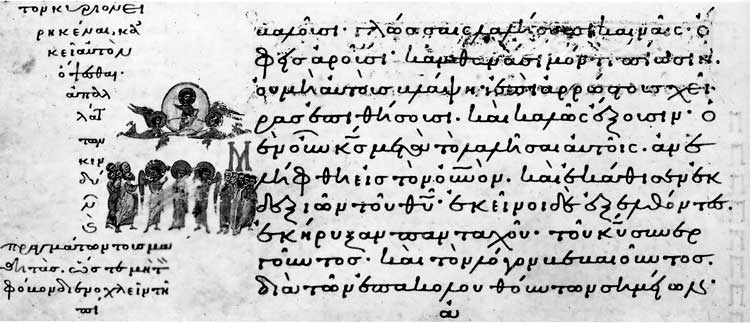 τὸν κύριον εἰ
ρηκέναι, κἀ
κεῖ αὐτὸν
ὄψεσθαι·
ἀπαλ
τῶν
κιν
δύ
πραγμάτων τοὺς μα
θητάς. ὥστε μὴ
βαλοῦσι· γλώσσαις λαλήσουσι καιναῖς· ὄ
φεις ἀροῦσι· κἂν θανάσιμόν τι πίωσιν.
οὐ μὴ αὐτοὺς βλάψη· ἐπὶ ἀρρώστους χεῖ
ρας ἐπιθήσουσι· καὶ καλῶς ἕξουσιν· ὁ
μὲν οὖν κ̅ς̅ μετὰ τὸ λαλῆσαι αὐτοῖς· ἀνε
λήφθη εἰς τὸν οὐ̅νον· καὶ ἐκάθισεν ἐκ
δεξιῶν τοῦ θ̅υ̅· ἐκεῖνοι δὲ ἐξελθόντες
ἐκήρυξαν πανταχοῦ· τοῦ κ̅υ̅ συνερ
γοῦντος· καὶ τὸν λόγον βεβαιοῦντος.
διὰ τῶν ἐπακολουθούντων σημείων·